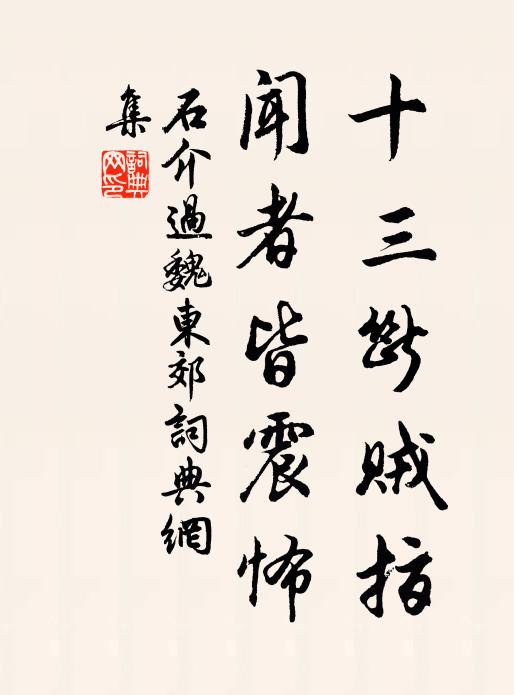 十三斷賊指
聞者皆震怖
石介過魏東郊詞典網
集
詞典
网印